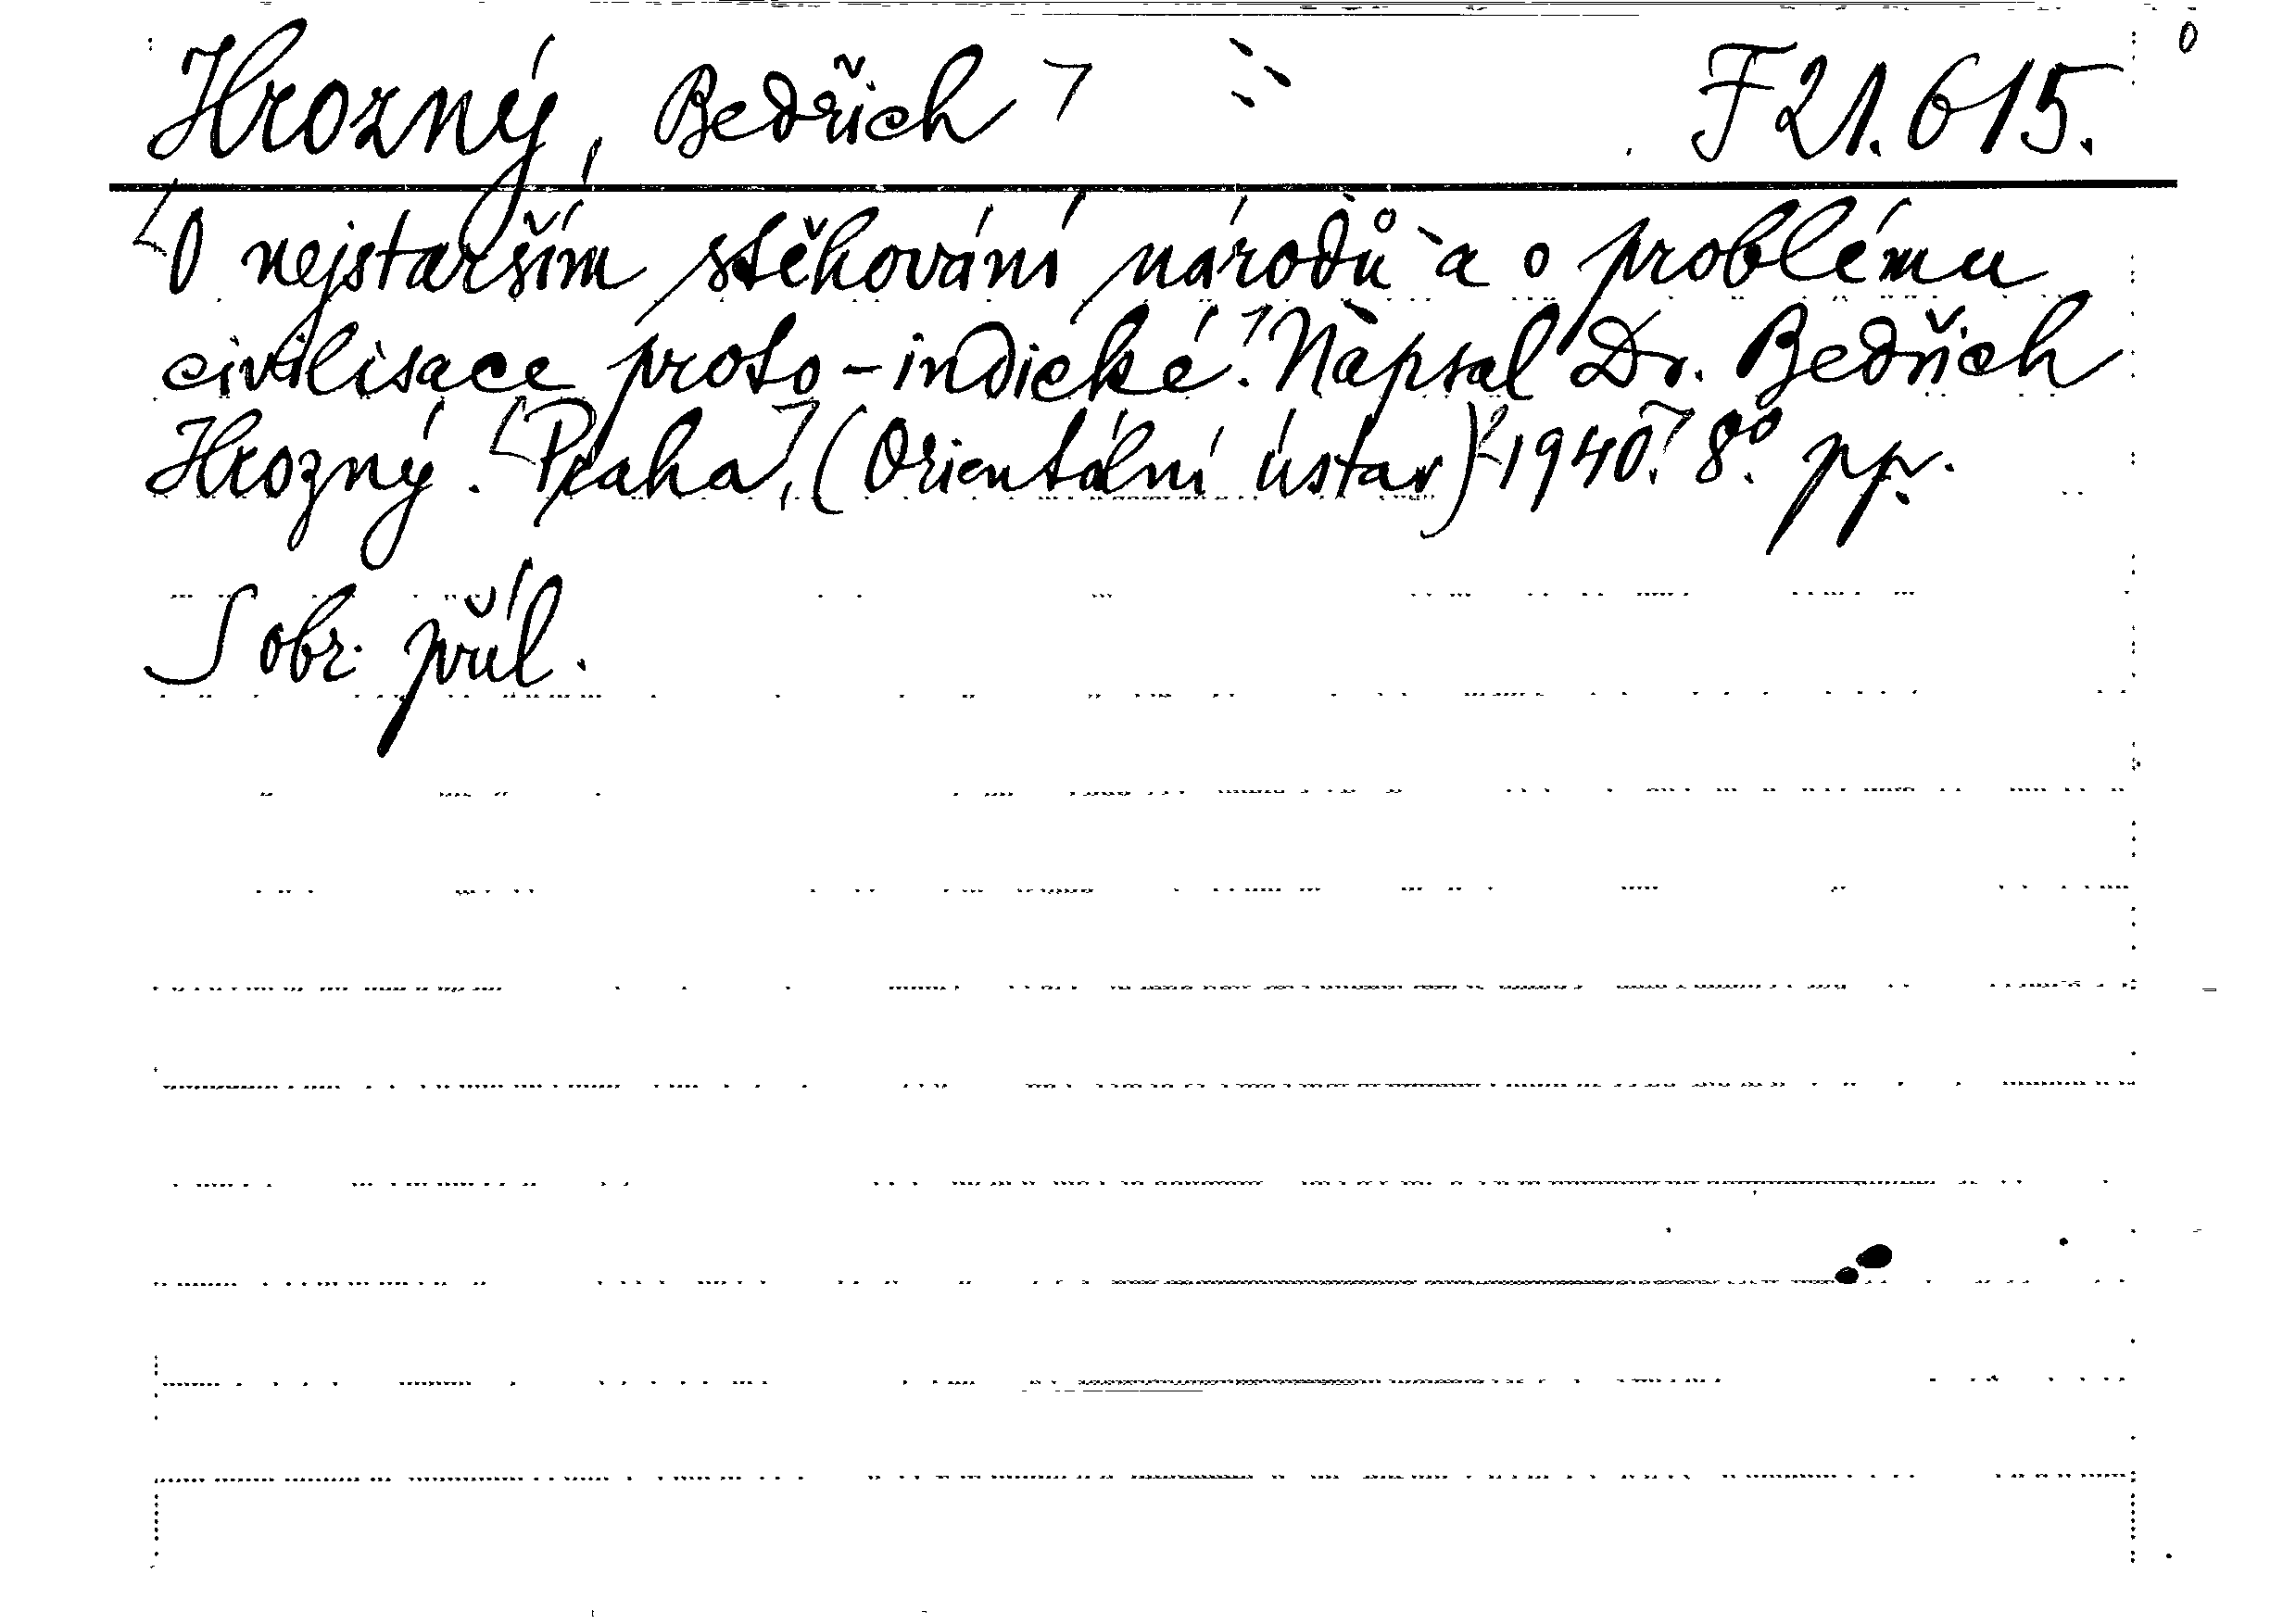 Hrozný, Bedřich F 21.615.
O nejstarším stěhování národů a o problému
civilisace proto-indické. Napsal Dr. Bedřich
Hrozný. Praha, (Orientální ústav) 1940. 8º. pp.
S obr. příl.